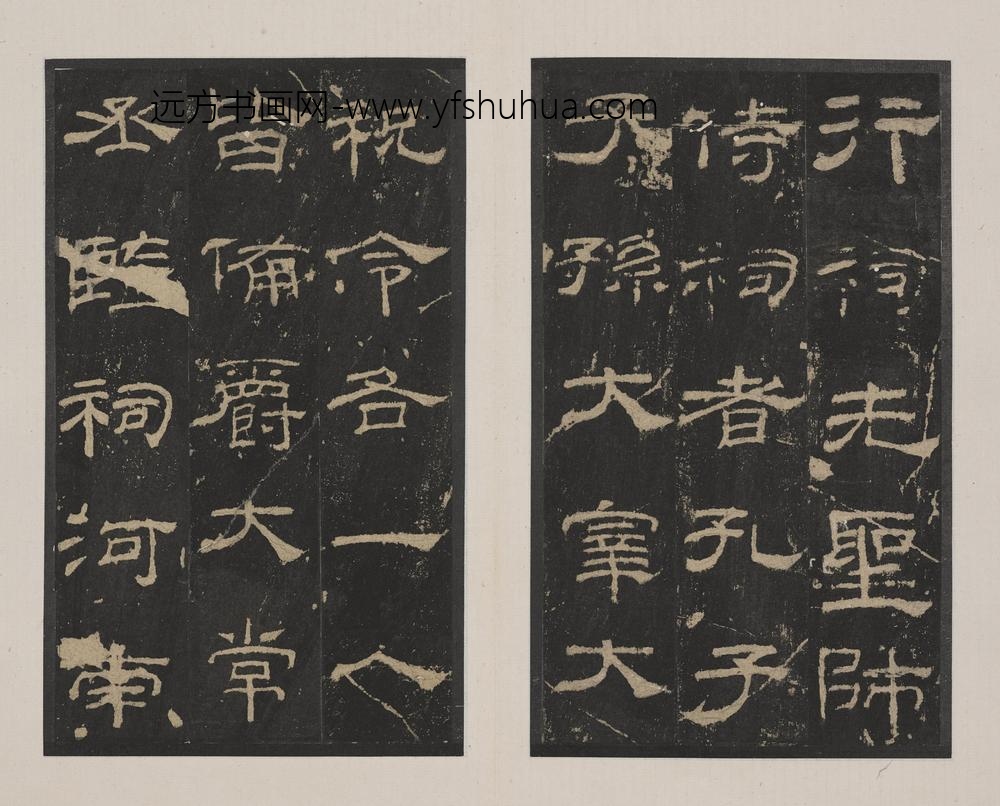 行祠先聖師
侍祠者孔子
子孫大宰大
祝令各一人
皆備爵大常
丞監祠河南
远方书画网-www.yfshuhua.com